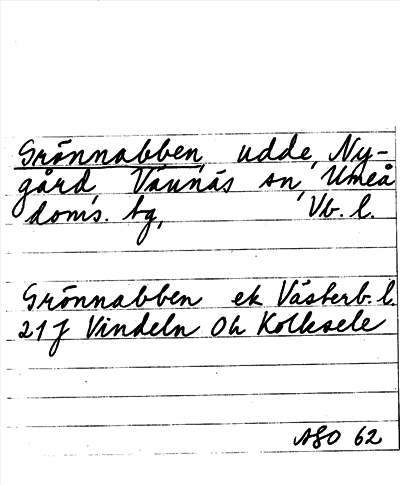 Grönnabben, udde, Ny-
gård, Vännäs sn, Umeå
doms. tg, Vb. l.
Grönnabben ek Västerb. l.
21J Vindeln Oh Kolksele
ASO 62